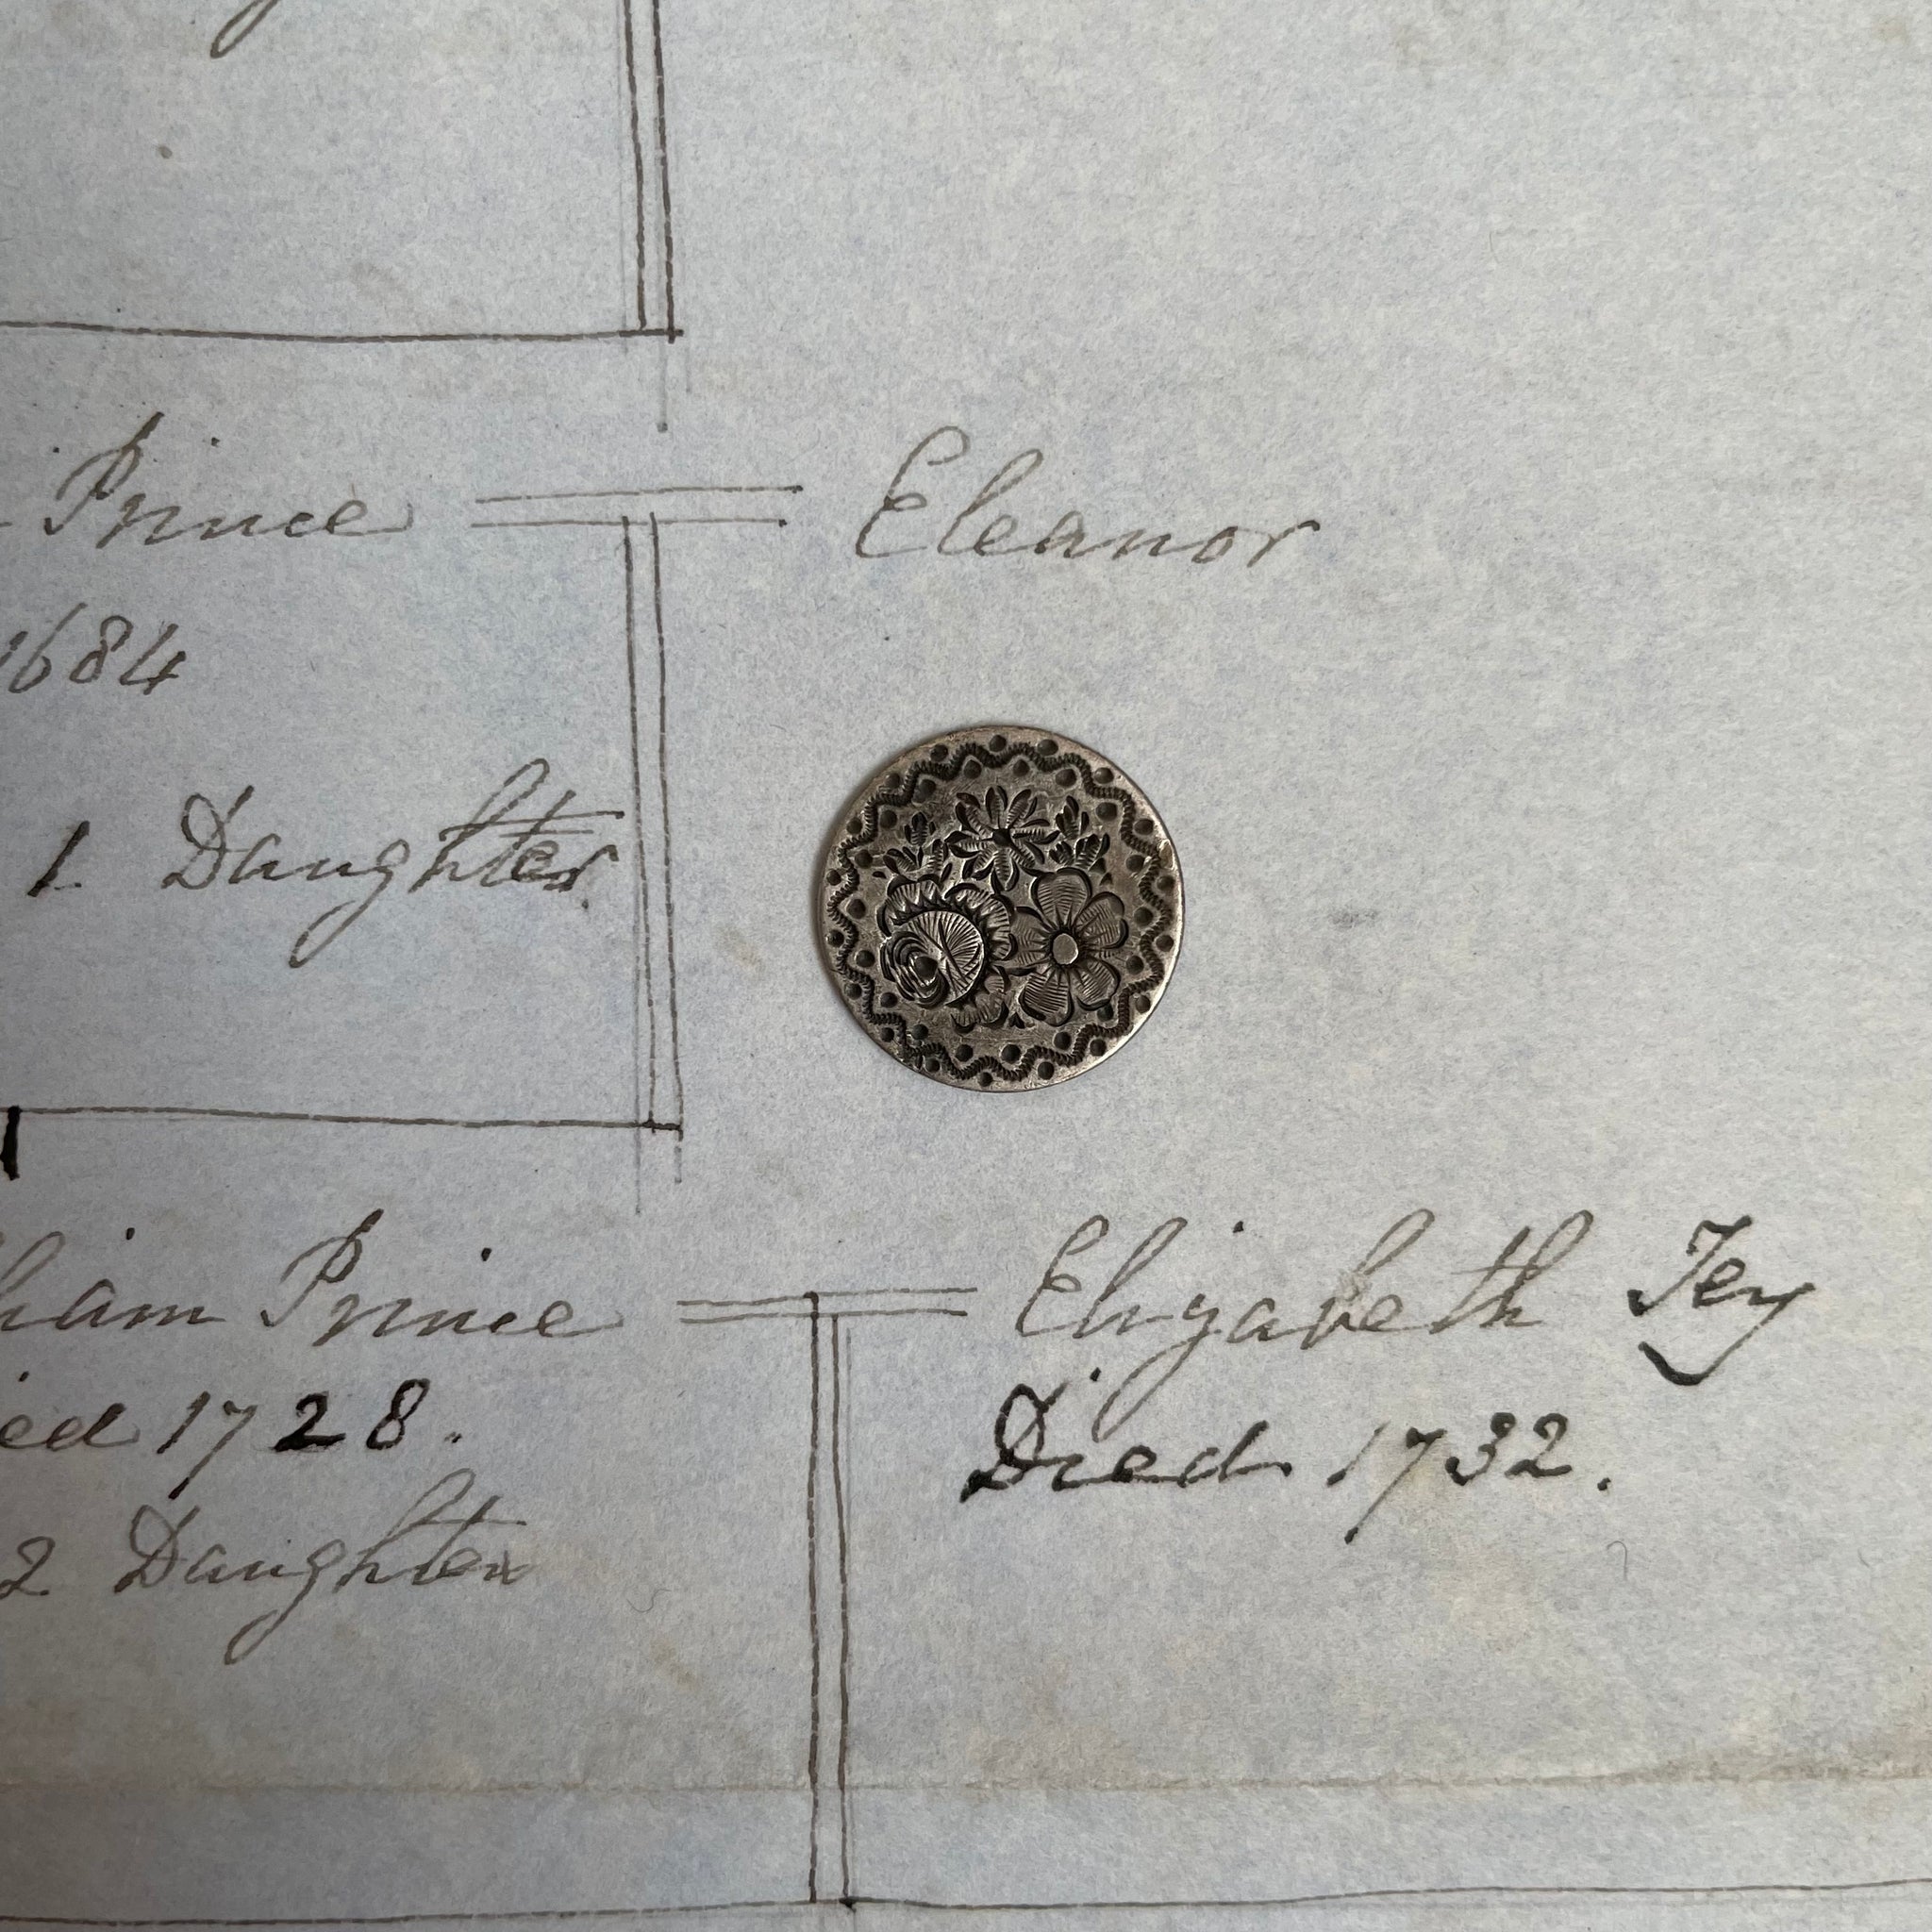 Prince Eleanor
1684
1 Daughter
ham Prince Elizabeth Tey
ied 1728. Died 1732.
2 Daughter